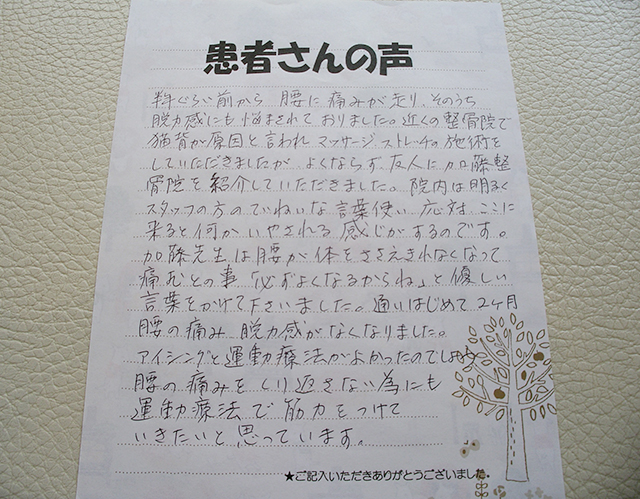 患者さんの声
半年ぐらい前から 腰に痛みが走り、そのうち
脱力感にも悩まされておりました。近くの整骨院で
猫背が原因と言われ マッサージ、ストレッチの施術を
していただきましたが よくならず、友人に加藤整
骨院を紹介していただきました。院内は明るく
スタッフの方のていねいな言葉使い 応対、ここに
来ると何かいやされる感じがするのです。
加藤先生は腰が体をささえきれなくなって
痛むとの事「必ずよくなるからね」と優しい
言葉をかけて下さいました。通いはじめて2ヶ月
腰の痛み 脱力感がなくなりました。
アイシングと運動療法がよかったのでしょう
腰の痛みをくり返さない為にも
運動療法で筋力をつけて
いきたいと思っています。
★ご記入いただきありがとうございました。